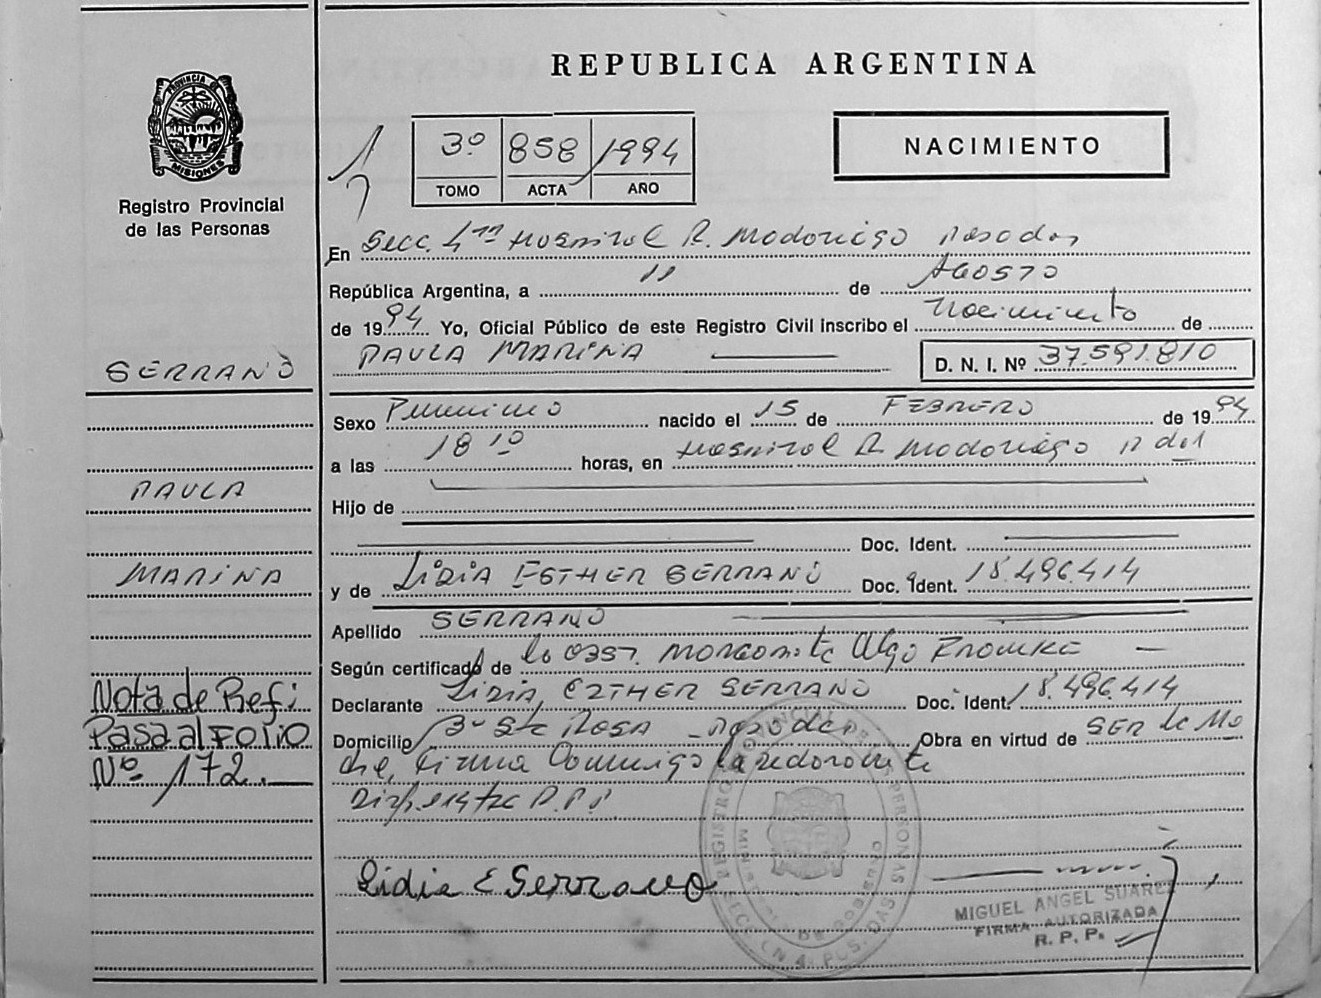 REPUBLICA ARGENTINA
PROVINCIA DE
MISIONES
Registro Provincial
de las Personas
3º 858 1994
TOMO ACTA AÑO
NACIMIENTO
En Secc. 4ta Hospital R. Madariaga Posadas
República Argentina, a 11 de AGOSTO
de 1994 Yo, Oficial Público de este Registro Civil inscribo el Nacimiento de
PAULA MARINA D. N. I. Nº 37.591.810
SERRANO
PAULA
MARINA
Nota de Refe.
Pasa al Folio
Nº 172.
Sexo Femenino nacido el 15 de FEBRERO de 1994
a las 18 10 horas, en Hospital R. Madariaga
Hijo de
Doc. Ident.
y de LIDIA ESTHER SERRANO Doc. Ident. 18.496.414
Apellido SERRANO
Según certificado de la obst. Margarita Olga
Declarante LIDIA, EZTHER SERRANO Doc. Ident. 18.496.414
Domicilio Bº Sta ROSA Posadas Obra en virtud de SER la Ma
dre, Firma
Lidia E Serrano
MIGUEL ANGEL SUAREZ
FIRMA AUTORIZADA
R. P. P.